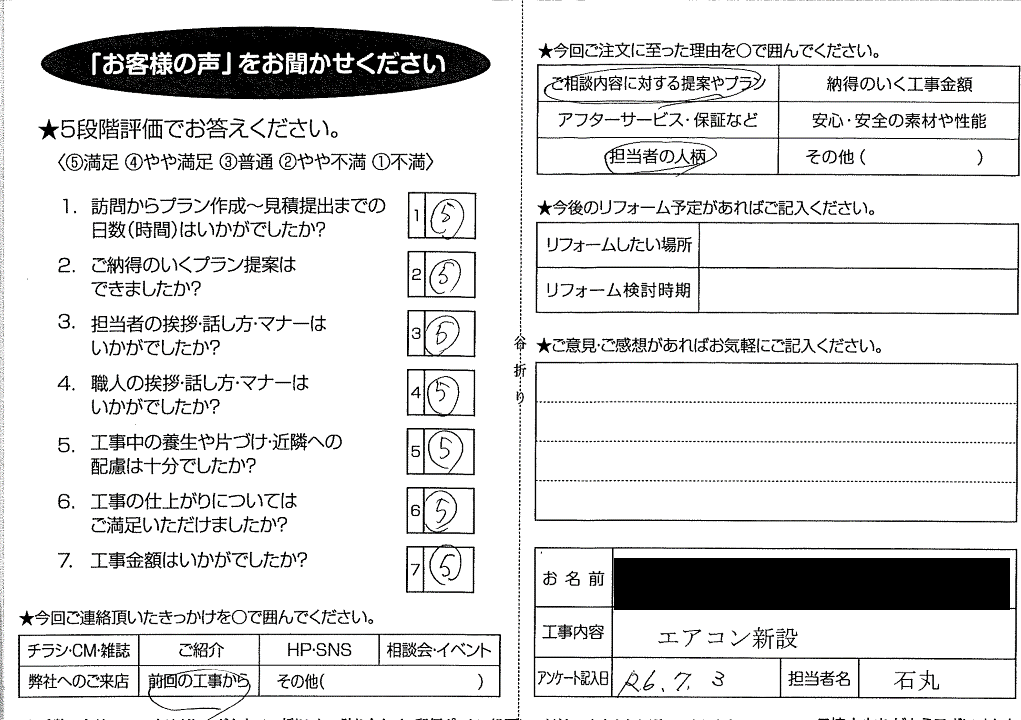 「お客様の声」をお聞かせください
★5段階評価でお答えください。
〈⑤満足 ④やや満足 ③普通 ②やや不満 ①不満〉
1. 訪問からプラン作成~見積提出までの
日数(時間)はいかがでしたか?
1 ⑤
2. ご納得のいくプラン提案は
できましたか?
2 ⑤
3. 担当者の挨拶・話し方・マナーは
いかがでしたか?
3 ⑤
4. 職人の挨拶・話し方・マナーは
いかがでしたか?
4 ⑤
5. 工事中の養生や片づけ・近隣への
配慮は十分でしたか?
5 ⑤
6. 工事の仕上がりについては
ご満足いただけましたか?
6 ⑤
7. 工事金額はいかがでしたか?
7 ⑤
★今回ご連絡頂いたきっかけを○で囲んでください。
チラシ・CM・雑誌 ご紹介 HP・SNS 相談会・イベント
弊社へのご来店 前回の工事から その他( )
谷折り
★今回ご注文に至った理由を○で囲んでください。
ご相談内容に対する提案やプラン 納得のいく工事金額
アフターサービス・保証など 安心・安全の素材や性能
担当者の人柄 その他( )
★今後のリフォーム予定があればご記入ください。
リフォームしたい場所
リフォーム検討時期
★ご意見・ご感想があればお気軽にご記入ください。
お名前
工事内容 エアコン新設
アンケート記入日 R6.7.3 担当者名 石丸